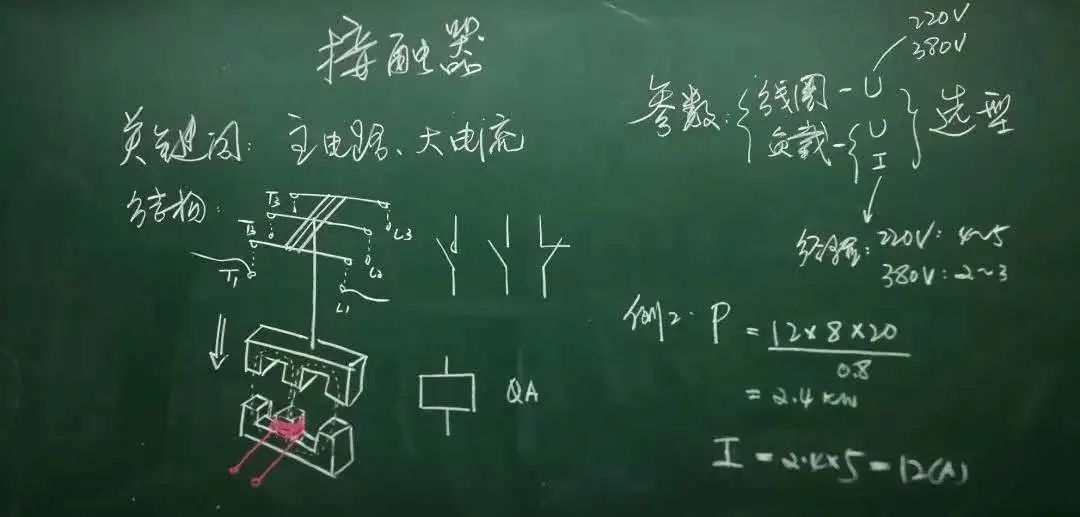 接触器
关键词: 主电路、大电流
结构:
T3
L3
T2
L2
T1
L1
QA
220V
380V
参数: 线圈-U
负载- U
I
选型
经验: 220V: 4~5
380V: 2~3
例2: P = 12×8×20
0.8
= 2.4 kW
I = 2.4×5 = 12(A)